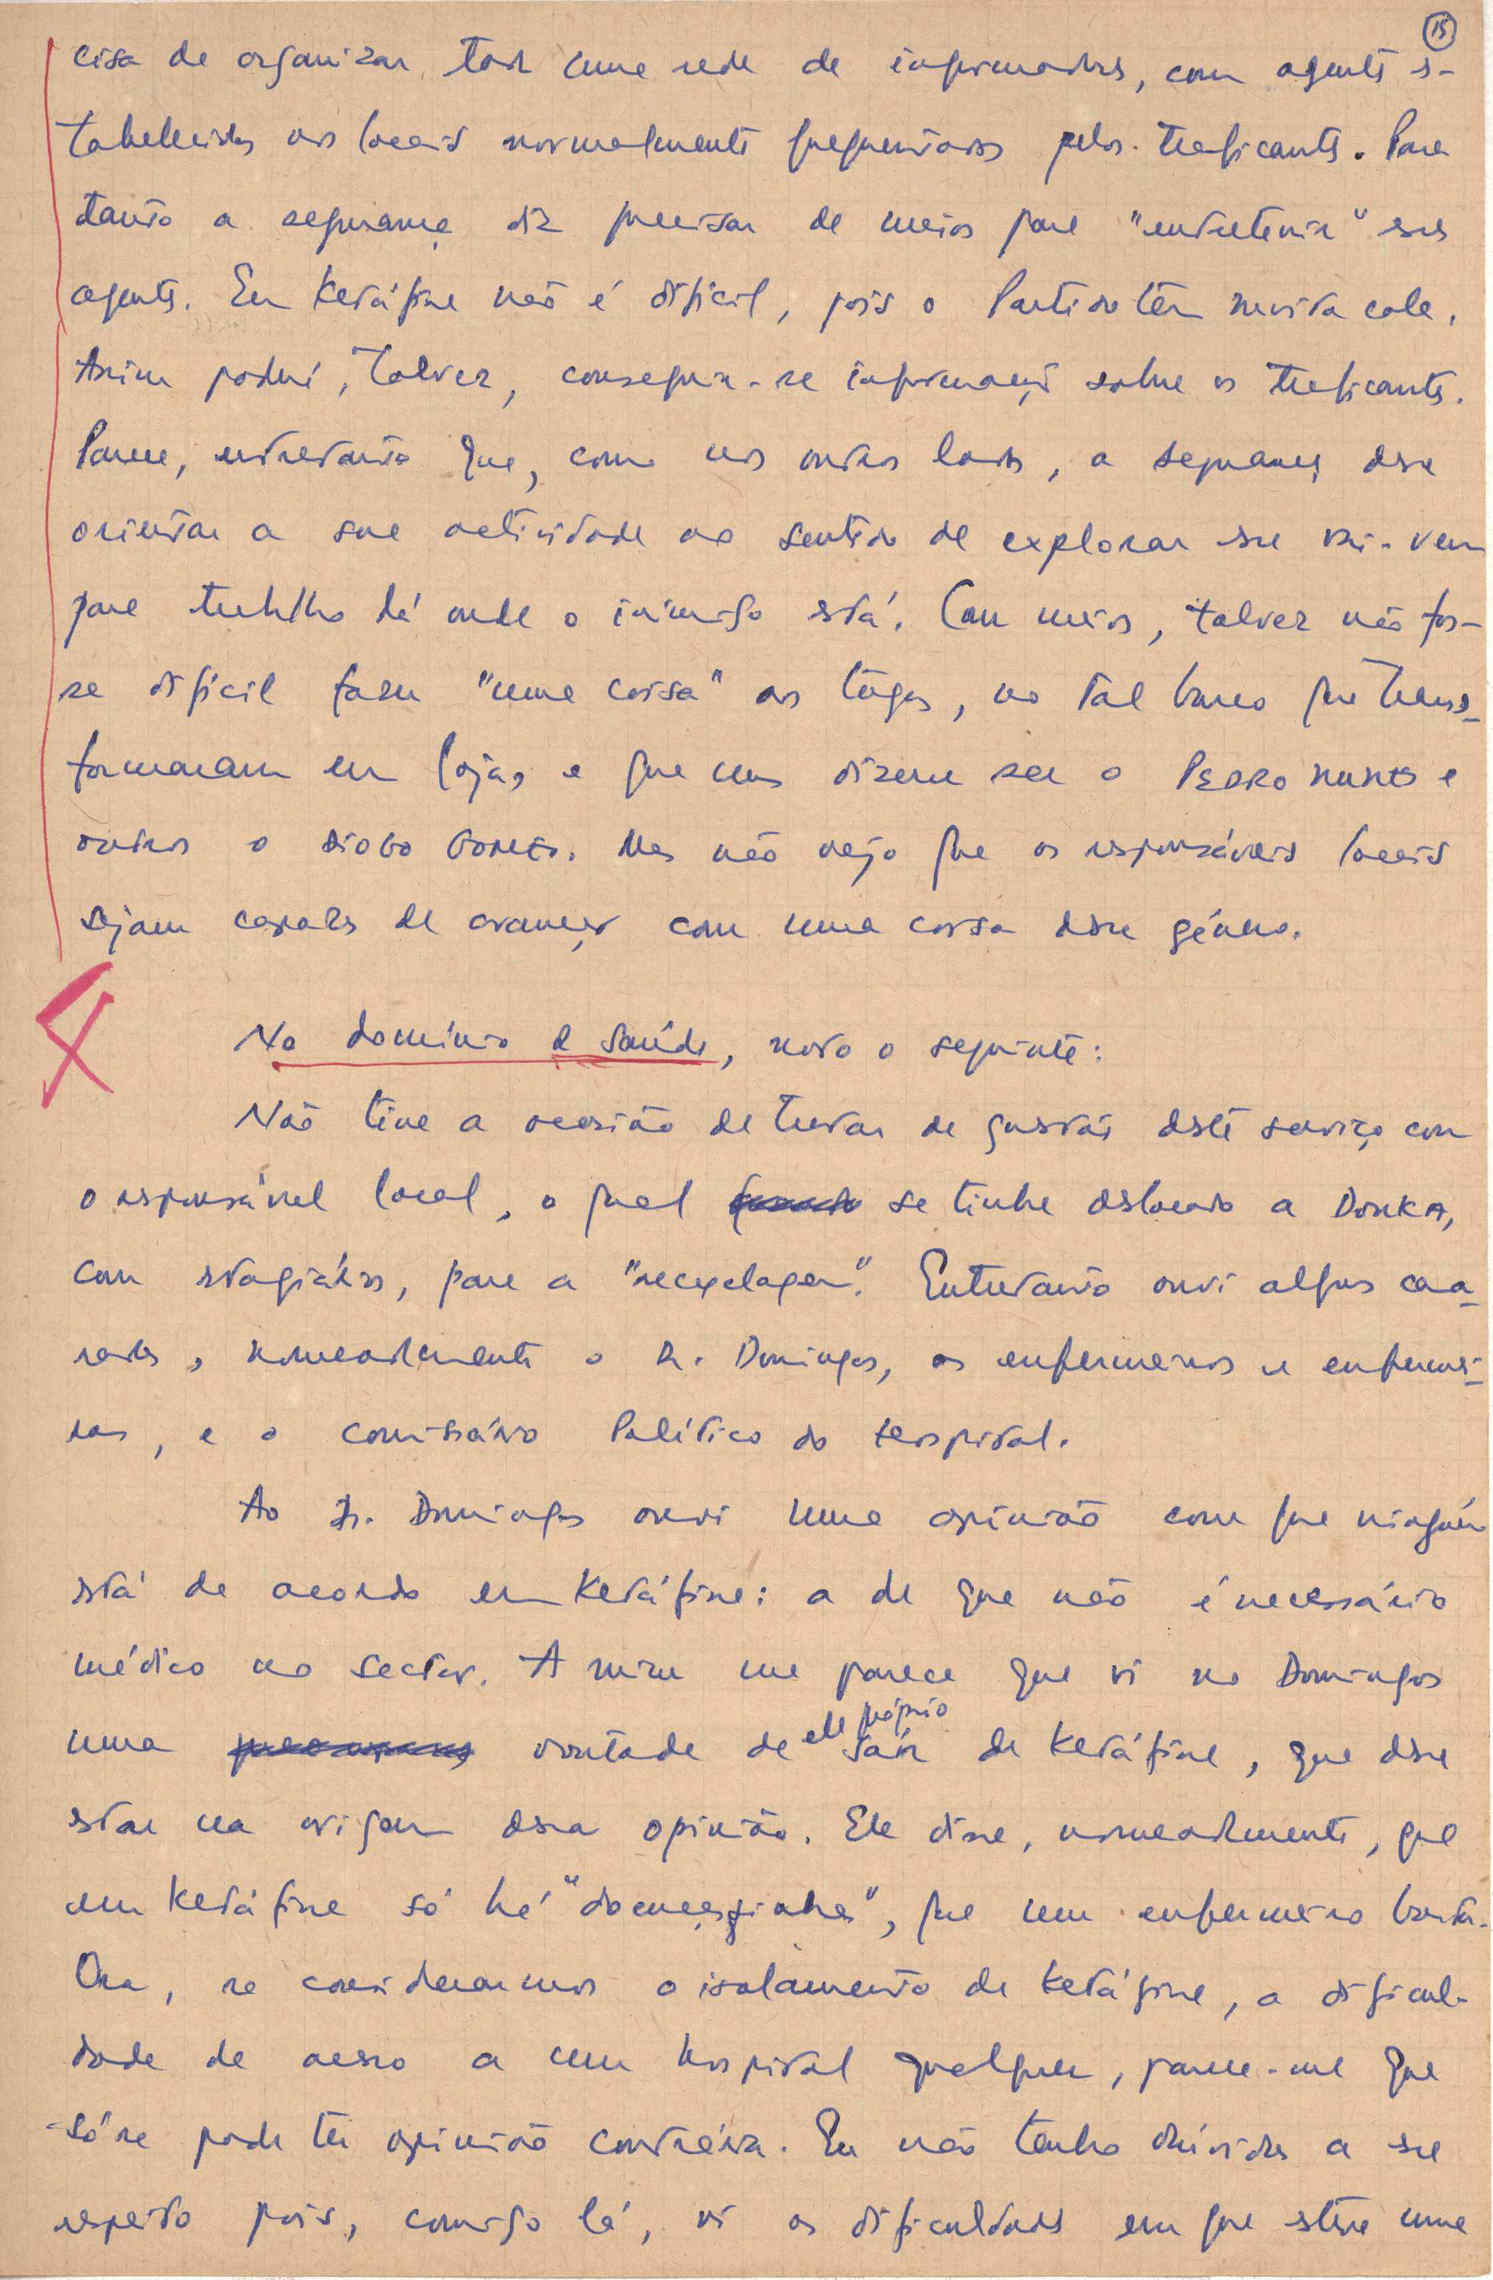 15
cisa de organizar toda uma rede de informadores, com agentes es-
tabelecidos nos locais normalmente frequentados pelos traficantes. Para
tanto a segurança diz precisar de meios para "entreter" esses
agentes. Em Ketáfine não é difícil, pois o Partido tem muita cola.
Assim poderá, talvez, conseguir-se informações sobre os traficantes.
Parece, entretanto que, como nos outros lados, a segurança deve
orientar a sua actividade no sentido de explorar esse vai-vem
para trabalho lá onde o inimigo está. Com meios, talvez não fos-
se difícil fazer "uma coisa" aos tugas, no tal barco que trans-
formaram em loja, e que uns dizem ser o PEDRO NUNES e
outros o DIOGO GOMES. Mas não vejo que os responsáveis locais
sejam capazes de avançar com uma coisa desse género.
No domínio da Saúde, noto o seguinte:
Não tive a ocasião de tratar de questões deste serviço com
o responsável local, o qual se tinha deslocado a DONKA,
com estagiários, para a "recyclagem". Entretanto ouvi alguns cama-
radas, nomeadamente o Dr. Domingos, os enfermeiros e enfermei-
ras, e o comissário Político do hospital.
Ao Dr. Domingos ouvi uma opinião com que ninguém
está de acordo em Ketáfine: a de que não é necessário
médico no sector. A mim me parece que vi no Domingos
uma vontade de ele próprio sair de Ketáfine, que deve
estar na origem dessa opinião. Ele disse, nomeadamente, que
em Ketáfine só há "doencinhas", que um enfermeiro basta.
Ora, se considerarmos o isolamento de Ketáfine, a dificul-
dade de acesso a um hospital qualquer, parece-me que
só se pode ter opinião contrária. Eu não tenho dúvidas a esse
respeito pois, comigo lá, vi as dificuldades em que esteve uma